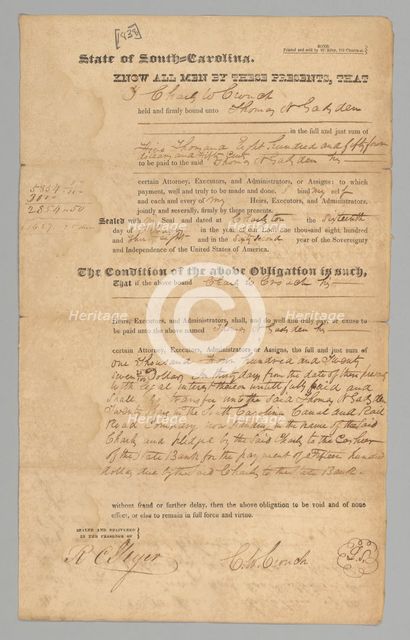 [1838]
BOND.
Printed and sold by W. Riley, 110 Church-st.
State of South-Carolina.
KNOW ALL MEN BY THESE PRESENTS, THAT
I Charles W Crouch
held and firmly bound unto Thomas N Gadsden
in the full and just sum of
Two Thousand Eight hundred and fifty four
Dollars and Fifty Cents
to be paid to the said Thomas N Gadsden his
certain Attorney, Executors, and Administrators, or Assigns: to which
payment, well and truly to be made and done. I bind my self
and each and every of my Heirs, Executors, and Administrators,
jointly and severally, firmly by these presents.
Sealed with my Seal and dated at Charleston the Sixteenth
day of in the year of our Lord one thousand eight hundred
and thirty eight and in the Sixty second year of the Sovereignty
and Independence of the United States of America.
2854=50
The Condition of the above Obligation is such,
That if the above bound Charles W Crouch his
Heirs, Executors, and Administrators, shall, and do well and truly pay, or cause to
be paid unto the above named Thomas N Gadsden his
certain Attorney, Executors, Administrators, or Assigns, the full and just sum of
One Thousand Four hundred and Twenty
Seven Dollars in thirty days from the date of these presents
with legal interest thereon until fully paid and
Shall transfer unto the Said Thomas N Gadsden
Twenty in the South Carolina Canal and Rail
Road Company now Standing in the name of the Said
Charles and pledged by the Said Charles to the Cashier
of the State Bank for the payment of Fifteen hundred
dollars due by the said Charles to the State Bank
without fraud or further delay, then the above obligation to be void and of none
effect, or else to remain in full force and virtue.
SEALED AND DELIVERED
IN THE PRESENCE OF
C. W. Crouch
L.S.
Heritage Heritage
Heritage Heritage
Images